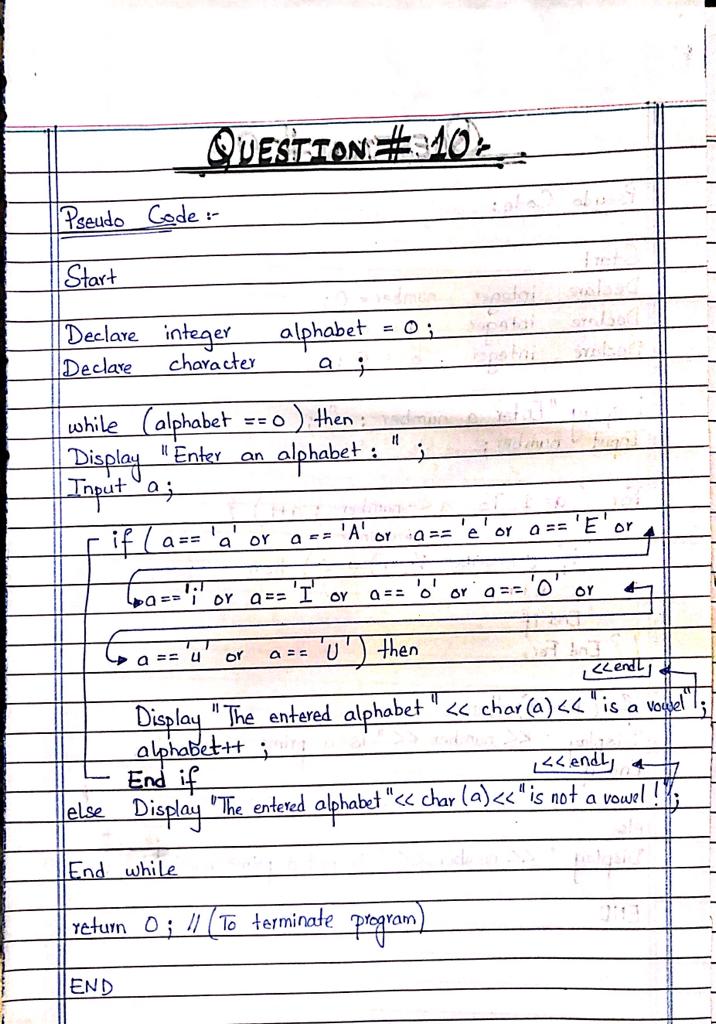 QUESTION # 10:-
Pseudo Code :-
Start
Declare integer alphabet = 0 ;
Declare character a ;
while (alphabet == 0) then :
Display "Enter an alphabet : " ;
Input a ;
if ( a == 'a' or a == 'A' or a == 'e' or a == 'E' or
a == 'i' or a == 'I' or a == 'o' or a == 'O' or
a == 'u' or a == 'U' ) then
<<endl
Display "The entered alphabet " << char(a) << " is a vowel" ;
alphabet++ ;
End if
<<endl
else Display "The entered alphabet " << char (a) << " is not a vowel !" ;
End while
return 0 ; // (To terminate program)
END